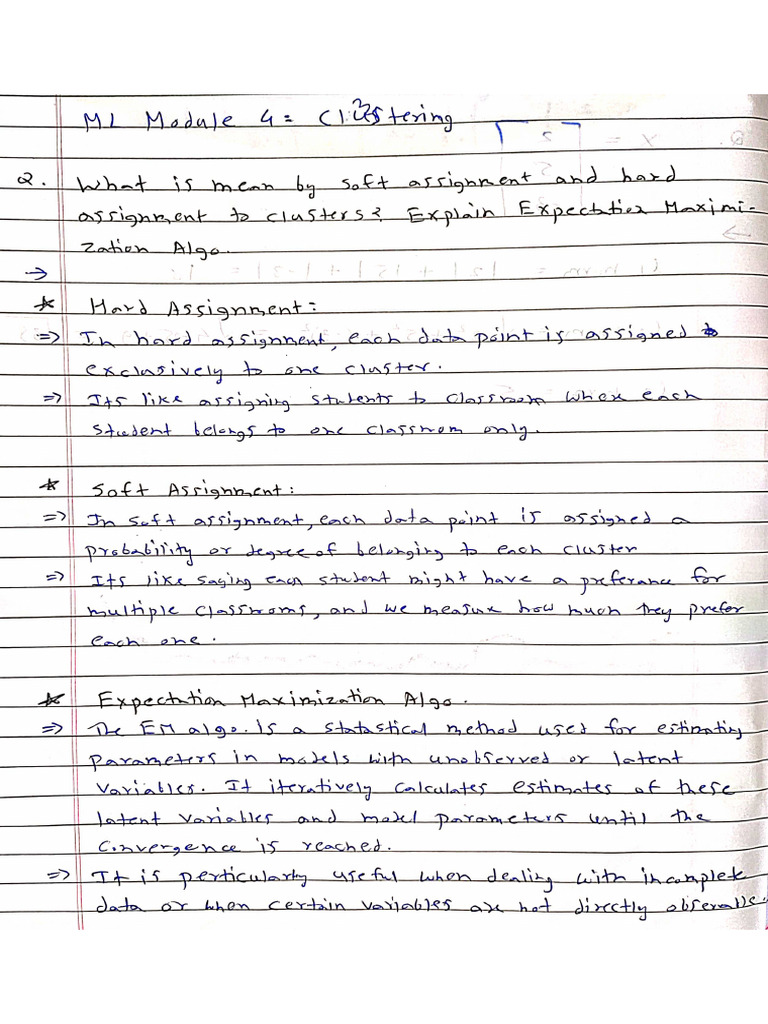 ML Module 4: Clustering
2. What is mean by soft assignment and hard
assignment to clusters? Explain Expectation Maximi-
zation Algo.
→
* Hard Assignment:
⇒ In hard assignment, each data point is assigned
exclusively to one cluster.
⇒ Its like assigning students to classroom where each
student belongs to one classroom only.
* Soft Assignment:
⇒ In soft assignment, each data point is assigned a
probability or degree of belonging to each cluster
⇒ Its like saying each student might have a preferance for
multiple classrooms, and we measure how much they prefer
each one.
* Expectation Maximization Algo.
⇒ The EM algo. is a statastical method used for estimating
parameters in models with unobserved or latent
variables. It iteratively calculates estimates of these
latent variables and model parameters until the
convergence is reached.
⇒ It is perticularly useful when dealing with incomplete
data or when certain variables are not directly observable.